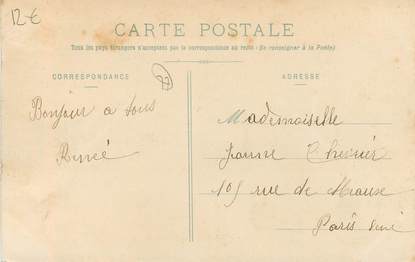 12€
CARTE POSTALE
Tous les pays étrangers n'acceptent pas la correspondance au recto (Se renseigner à la Poste)
CORRESPONDANCE
27
ADRESSE
Bonjour a tous
René
Mademoiselle
Jeanne
105 rue de Meaux
Paris